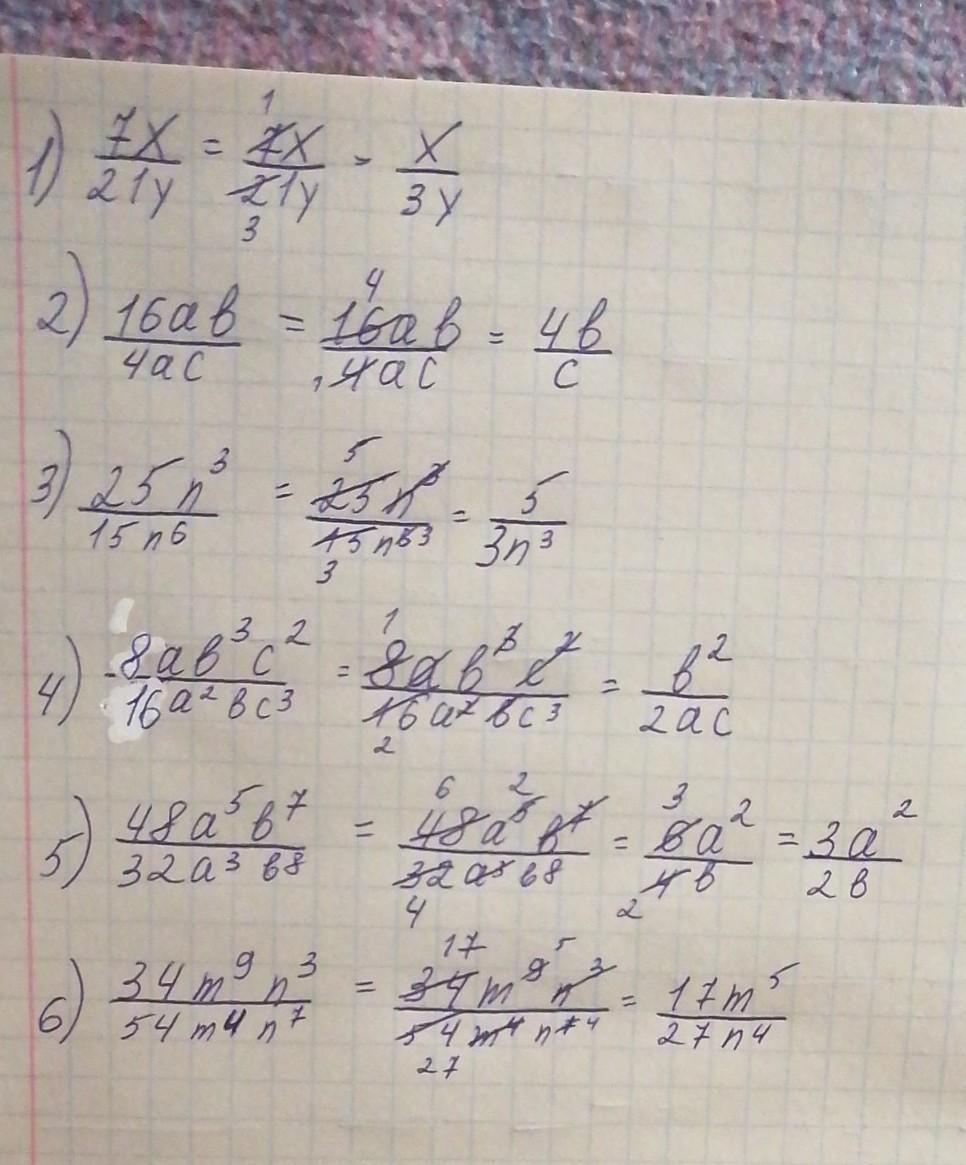 1) 7x/21y = 7x/21y = x/3y
2) 16ab/4ac = 16ab/4ac = 4b/c
3) 25n³/15n⁶ = 25n³/15n⁶ = 5/3n³
4) 8ab³c²/16a²bc³ = 8ab³c²/16a²bc³ = b²/2ac
5) 48a⁵b⁷/32a³b⁸ = 48a⁵b⁷/32a³b⁸ = 6a²/4b = 3a²/2b
6) 34m⁹n³/54m⁴n⁷ = 34m⁹n³/54m⁴n⁷ = 17m⁵/27n⁴